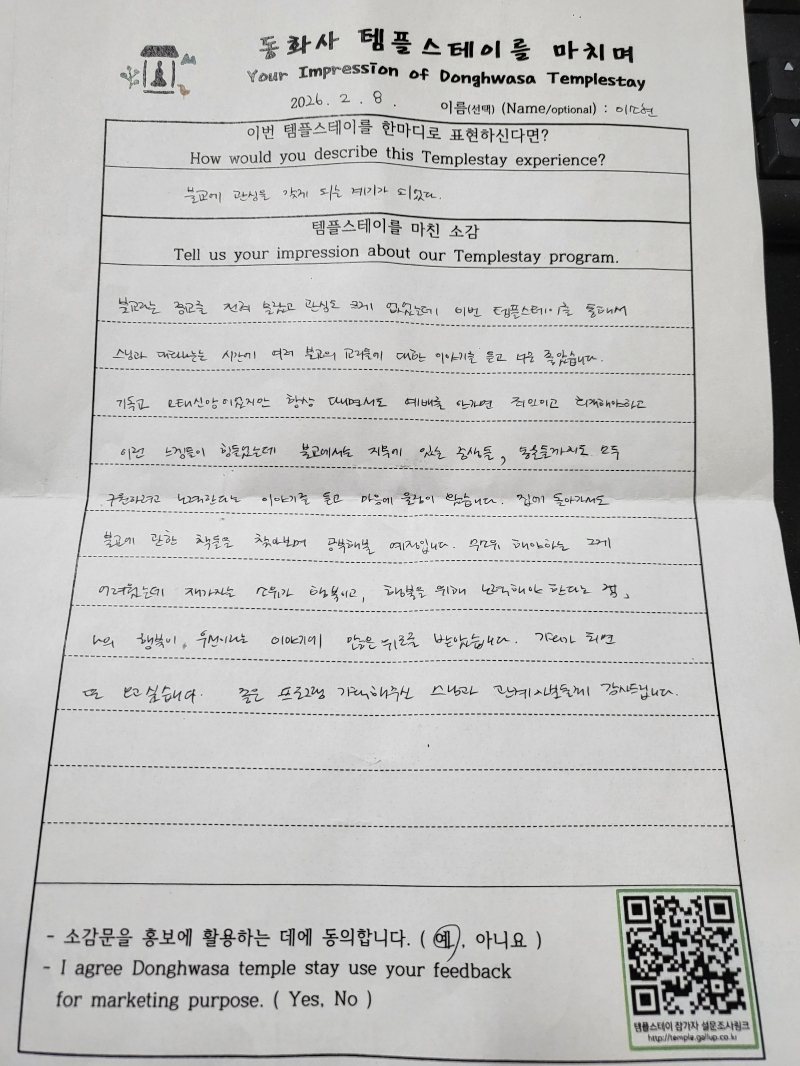 동화사 템플스테이를 마치며
Your Impression of Donghwasa Templestay
2026. 2. 8. 이름(선택) (Name/optional) :
이번 템플스테이를 한마디로 표현하신다면?
How would you describe this Templestay experience?
불교에 관심을 갖게 되는 계기가 되었다.
템플스테이를 마친 소감
Tell us your impression about our Templestay program.
불교라는 종교를 전혀 몰랐고 관심도 크게 없었는데 이번 템플스테이를 통해서
스님과 대화나누는 시간에 여러 불교의 교리들에 대한 이야기를 듣고 너무 좋았습니다.
기독교 모태신앙이었지만 항상 다니면서도 예배를 안가면 죄인이고 회개해야하고
이런 느낌들이 힘들었는데 불교에서는 지옥에 있는 중생들, 동물들까지도 모두
구원하려고 노력한다는 이야기를 듣고 마음에 울림이 컸습니다. 집에 돌아가서도
불교에 관한 책들을 찾아보며 공부해볼 예정입니다. 해야하는 그게
어려웠는데 행복이고, 행복을 위해 노력해야 한다는 것,
나의 행복이 우선이라는 이야기에 많은 위로를 받았습니다. 기회가 되면
또 오고싶습니다. 좋은 프로그램 기획해주신 스님과 관계자분들께 감사드립니다.
- 소감문을 홍보에 활용하는 데에 동의합니다. ( 예, 아니요 )
- I agree Donghwasa temple stay use your feedback
for marketing purpose. ( Yes, No )
템플스테이 참가자 설문조사링크
http://temple.gallup.co.kr